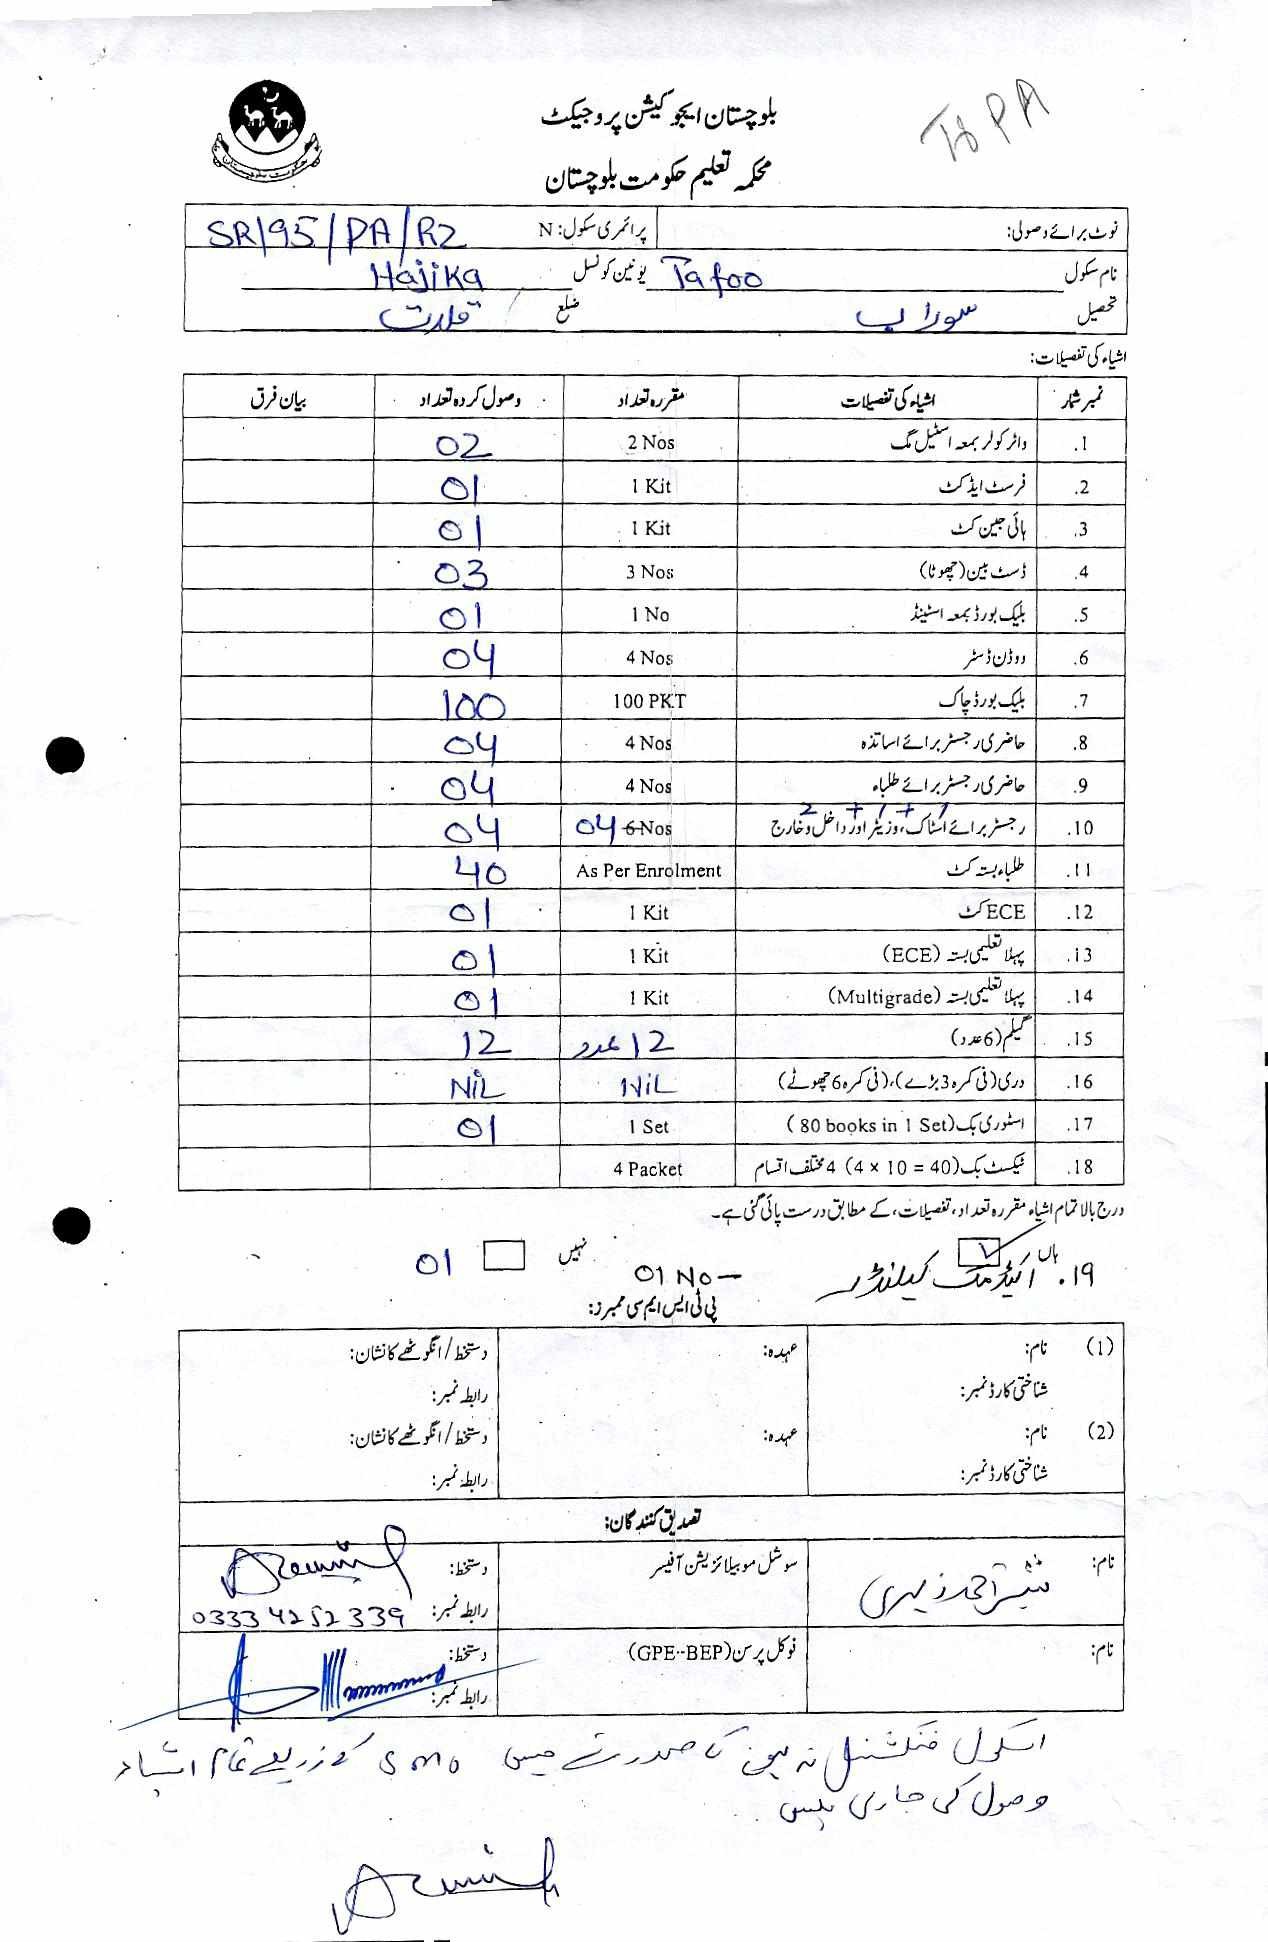 To PA
بلوچستان ایجوکیشن پروجیکٹ
محکمہ تعلیم حکومت بلوچستان
نوٹ برائے وصولی: پرائمری سکول: N SR/95/PA/R2
نام سکول Tafoo یونین کونسل Hajika
تحصیل سوراب ضلع قلات
اشیاء کی تفصیلات:
نمبر شمار اشیاء کی تفصیلات مقررہ تعداد وصول کردہ تعداد بیان فرق
1. واٹر کولر بمعہ اسٹیل مگ 2 Nos 02
2. فرسٹ ایڈ کٹ 1 Kit 01
3. ہائی جین کٹ 1 Kit 01
4. ڈسٹ بین (چھوٹا) 3 Nos 03
5. بلیک بورڈ بمعہ اسٹینڈ 1 No 01
6. ووڈن ڈسٹر 4 Nos 04
7. بلیک بورڈ چاک 100 PKT 100
8. حاضری رجسٹر برائے اساتذہ 4 Nos 04
9. حاضری رجسٹر برائے طلباء 4 Nos 04
2 + 1 + 1
10. رجسٹر برائے اسٹاک، وزیٹر اور داخل و خارج 6 Nos 04 04
11. طلباء بستہ کٹ As Per Enrolment 40
12. ECE کٹ 1 Kit 01
13. پہلا تعلیمی بستہ (ECE) 1 Kit 01
14. پہلا تعلیمی بستہ (Multigrade) 1 Kit 01
15. گلیم (6 عدد) 12 عدد 12
16. دری (فی کمرہ 3 بڑے)، (فی کمرہ 6 چھوٹے) NiL NiL
17. اسٹوری بک (80 books in 1 Set) 1 Set 01
18. ٹیکسٹ بک (4 × 10 = 40) 4 مختلف اقسام 4 Packet
درج بالا تمام اشیاء مقررہ تعداد، تفصیلات، کے مطابق درست پائی گئی ہے۔
ہاں ✓ نہیں
19. اکیڈمک کیلنڈر 01 No – 01
پی ٹی ایس ایم سی ممبرز:
(1) نام: عہدہ: دستخط/انگوٹھے کا نشان:
شناختی کارڈ نمبر: رابطہ نمبر:
(2) نام: عہدہ: دستخط/انگوٹھے کا نشان:
شناختی کارڈ نمبر: رابطہ نمبر:
تصدیق کنندگان:
نام: احمد زہری سوشل موبیلائزیشن آفیسر دستخط:
رابطہ نمبر: 03334252339
نام: فوکل پرسن (GPE--BEP) دستخط:
رابطہ نمبر:
اسکول فنکشنل نہ ہونے کی صورت میں SMO کے ذریعے تمام اشیاء
وصول کی جارہی ہیں۔